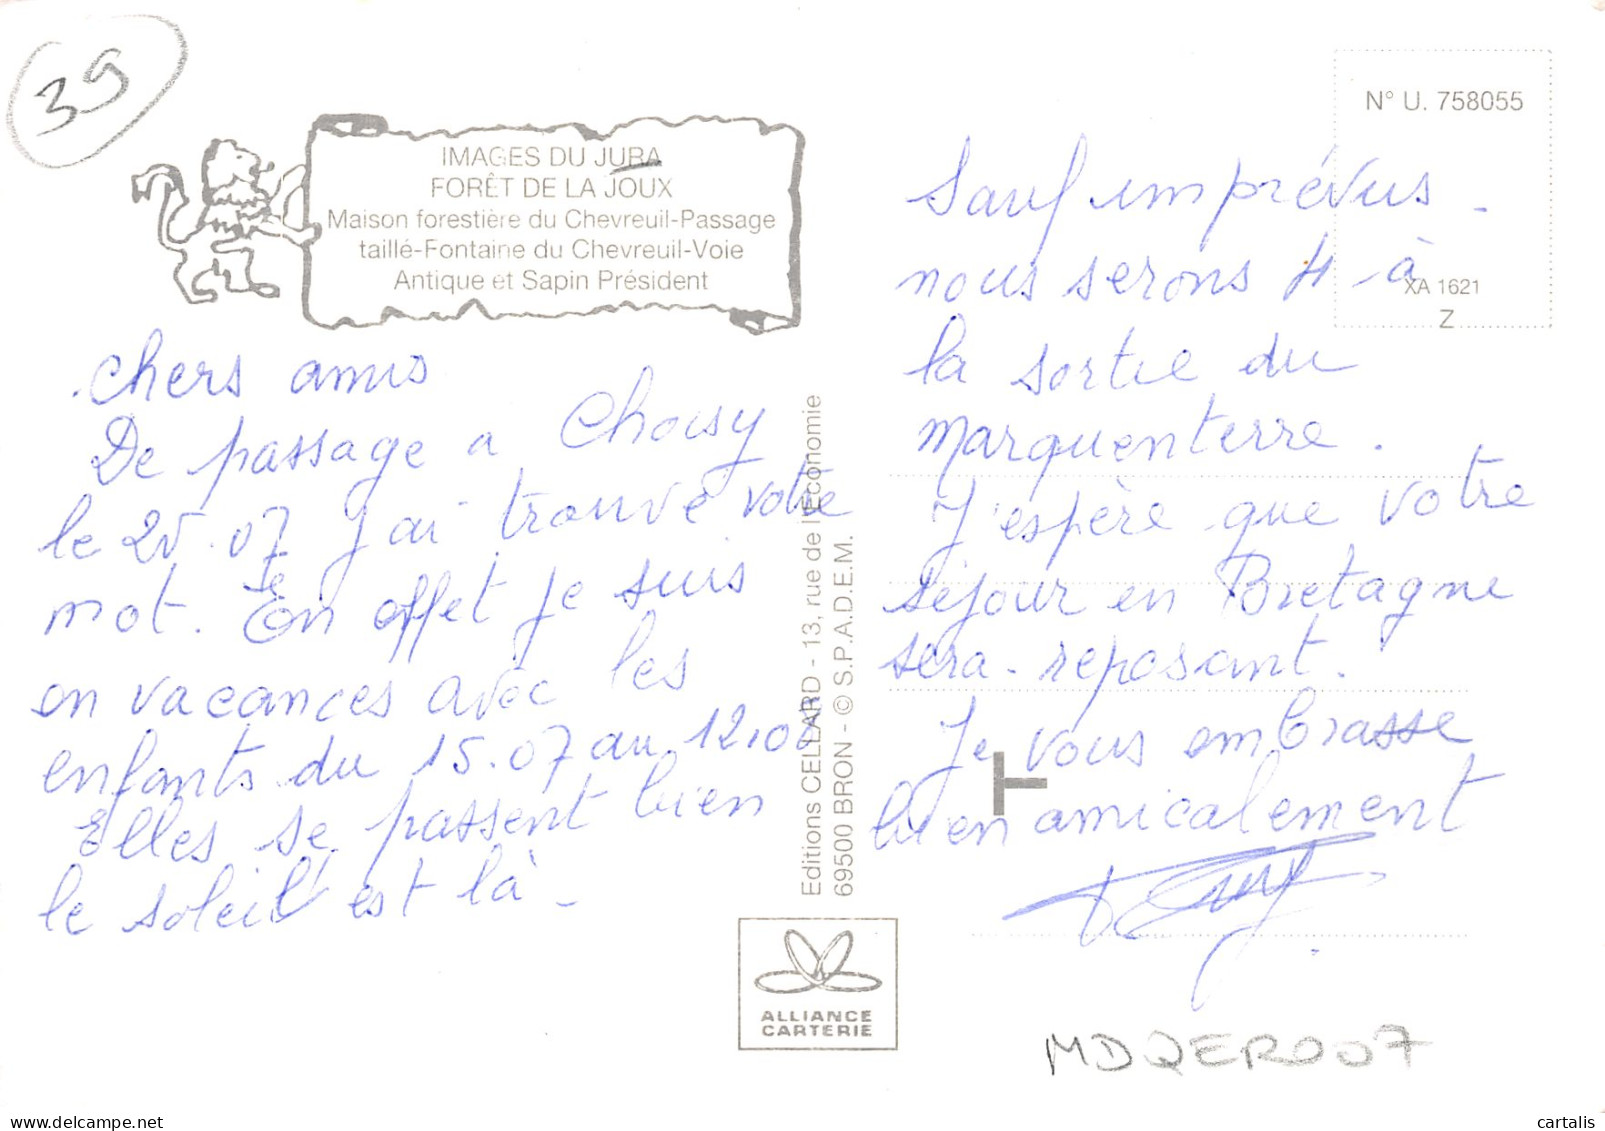 39
IMAGES DU JURA
FORÊT DE LA JOUX
Maison forestière du Chevreuil-Passage
taillé-Fontaine du Chevreuil-Voie
Antique et Sapin Président
N° U. 758055
XA 1621
Z
Chers amis
De passage a Choisy
le 25.07 j'ai trouvé votre
mot. En effet je suis
en vacances avec les
enfants du 15.07 au 12.08
Elles se passent bien
le soleil est là -
Editions CELLARD - 13, rue de l'Economie
69500 BRON - © S.P.A.D.E.M.
ALLIANCE
CARTERIE
Sauf imprévus -
nous serons 4 à
la sortie du
Marquenterre.
J'espère que votre
séjour en Bretagne
sera reposant.
Je vous embrasse
bien amicalement
MDQER007
cartalis sur delcampe.net